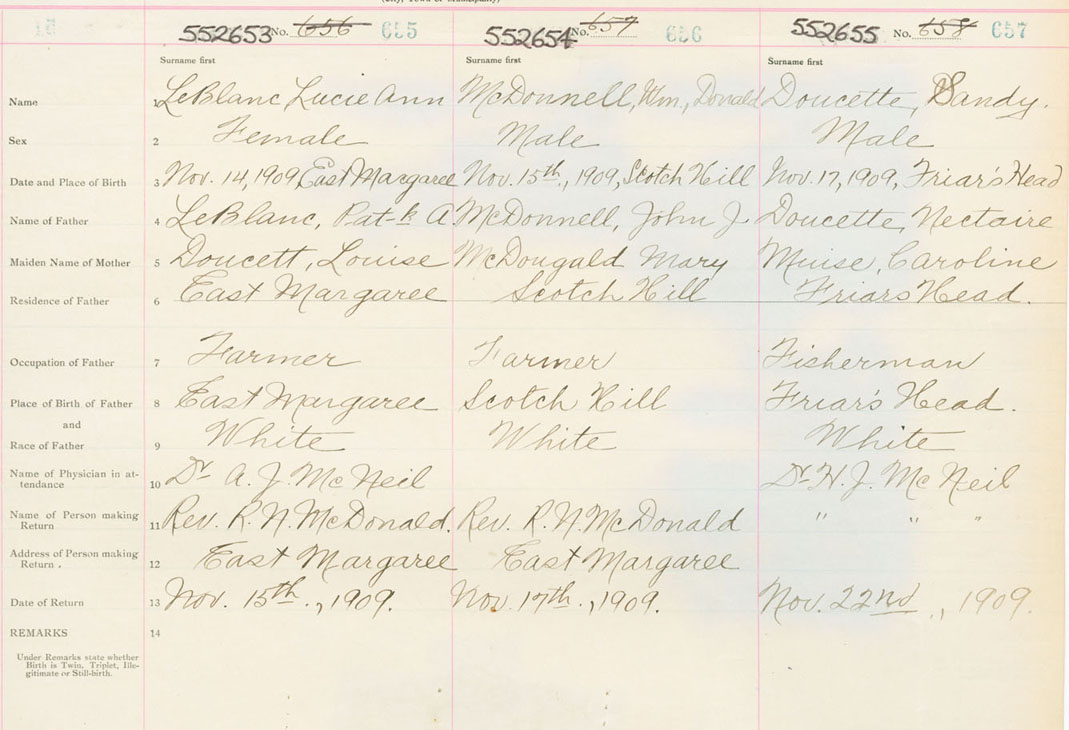 (City, Town or Municipality)
552653 No. 656 655 552654 No. 657 656 552655 No. 658 657
Surname first Surname first Surname first
Name 1 LeBlanc Lucie Ann McDonnell, Wm, Donald Doucette, Sandy.
Sex 2 Female Male Male
Date and Place of Birth 3 Nov. 14, 1909, East Margaree Nov. 15th, 1909, Scotch Hill Nov. 17, 1909, Friar's Head
Name of Father 4 LeBlanc, Pat-k A McDonnell, John J Doucette, Nectaire
Maiden Name of Mother 5 Doucett, Louise McDougald Mary Muise, Caroline
Residence of Father 6 East Margaree Scotch Hill Friars Head.
Occupation of Father 7 Farmer Farmer Fisherman
Place of Birth of Father 8 East Margaree Scotch Hill Friar's Head.
and
Race of Father 9 White White White
Name of Physician in at-
tendance 10 Dr A. J. McNeil Dr H. J. McNeil
Name of Person making
Return 11 Rev. R. N. McDonald. Rev. R. N. McDonald " " "
Address of Person making
Return . 12 East Margaree East Margaree
Date of Return 13 Nov. 15th., 1909. Nov. 17th., 1909. Nov. 22nd, 1909.
REMARKS 14
Under Remarks state whether
Birth is Twin, Triplet, Ille-
gitimate or Still-birth.